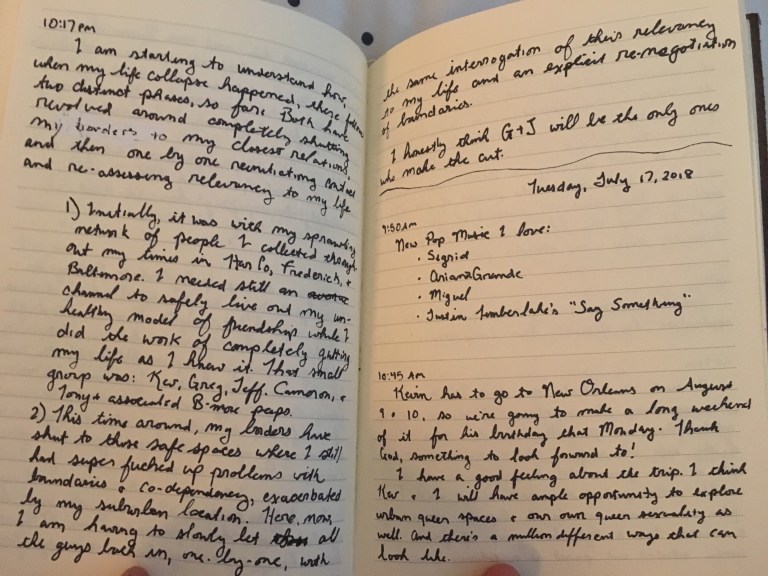 10:17 pm
I am starting to understand how,
when my life collapse happened, there
two distinct phases, so far. Both have
revolved around completely shutting
my borders to my closest relations,
and then one by one recruiting
and re-assessing relevancy to my life
1) Initially, it was with my sprawling
network of people I collected through-
out my times in HarCo, Frederick, +
Baltimore. I needed still an
channel to safely live out my un-
healthy model of friendship while I
did the work of completely gutting
my life as I knew it. That small
group was: Kev, Greg, Jeff, Cameron, +
Tony + associated B-more peeps.
2) This time around, my borders have
shut to those safe spaces where I still
had super fucked up problems with
boundaries + co-dependency, exacerbated
by my suburban location. Here, now,
I am having to slowly let all
the guys back in, one-by-one, with
the same interrogation of their relevancy
to my life and an explicit re-negotiation
of boundaries.
I honestly think G+J will be the only ones
who make the cut.
Tuesday, July 17, 2018
9:50am
New Pop Music I love:
• Sigrid
• Ariana Grande
• Miguel
• Justin Timberlake's "Say Something".
10:45 Am
Kevin has to go to New Orleans on August
9 + 10, so we're going to make a long weekend
of it for his birthday that Monday. Thank
God, something to look forward to!
I have a good feeling about the trip. I think
Kev + I will have ample opportunity to explore
urban queer spaces + our own queer sexuality as
well. And there's a million different ways that can
look like.